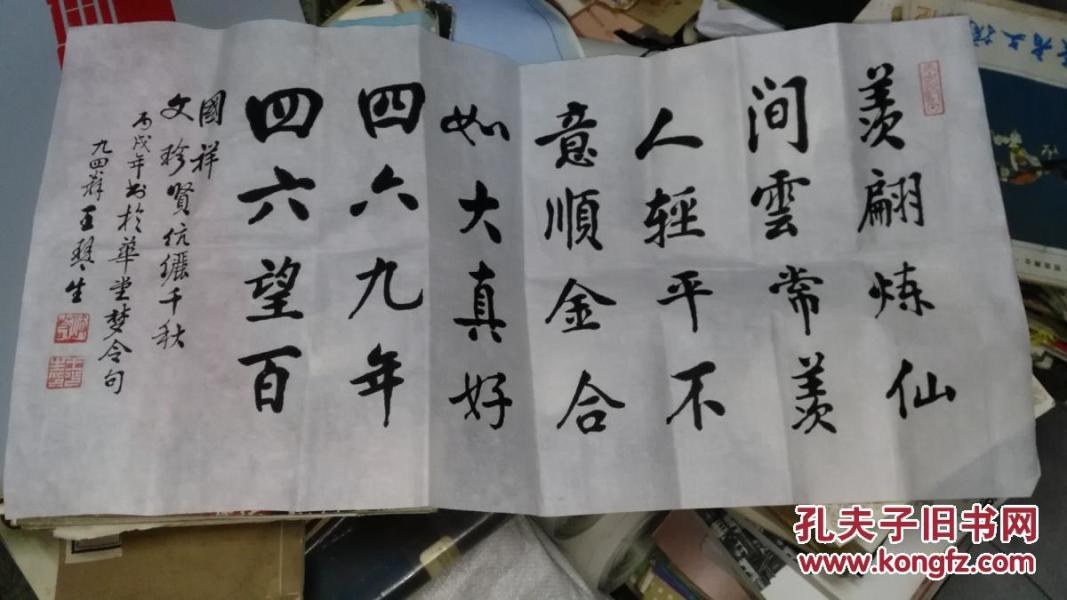 羡翩炼仙
间雲常羡
人轻平不
意順金合
如大真好
四六九年
四六望百
國祥
文珍賢伉儷千秋
丙戌年书於華堂梦令句
九四辞王琴生
孔夫子旧书网
www.kongfz.com